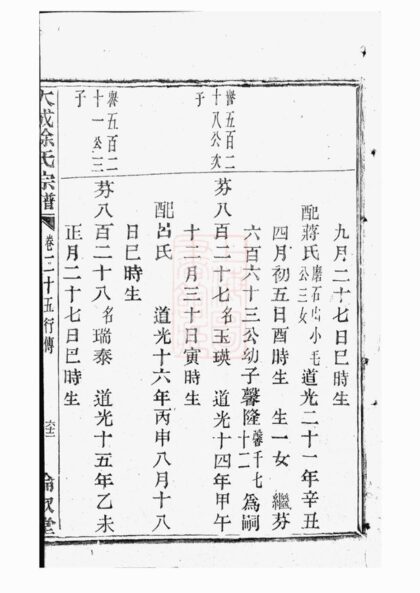 九月二十七日巳時生
配蔣氏磨石山小毛公三女道光二十一年辛丑
四月初五日酉時生 生一女 繼芬
六百六十三公幼子馨隆馨千七十二爲嗣
譽五百二十八公次子
芬八百二十七名玉瑛 道光十四年甲午
十二月三十日寅時生
配呂氏 道光十六年丙申八月十八
日巳時生
譽五百二十一公三子
芬八百二十八名瑞泰 道光十五年乙未
正月二十七日巳時生
大成徐氏宗譜 卷二十五行傳 倫敘堂